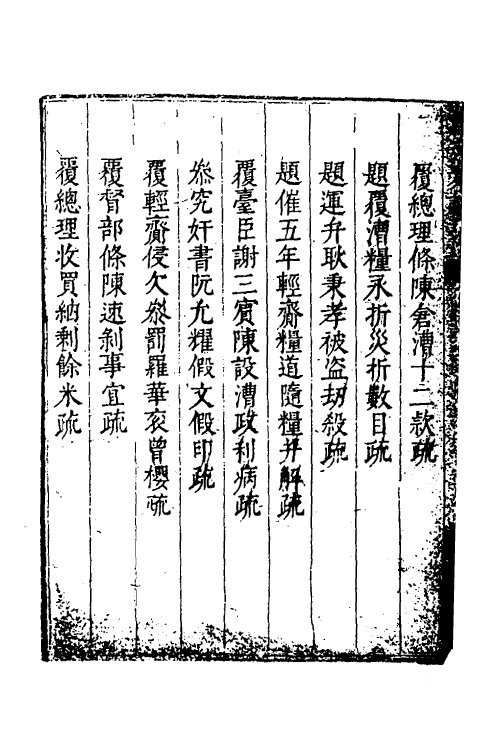 覆總理條陳倉漕十二款疏
題覆漕糧永折災折數目疏
題運弁耿秉孝被盜劫殺疏
題催五年輕齎糧道隨糧並解疏
覆臺臣謝三賓陳設漕政利病疏
叅究奸書阮允糴假文假印疏
覆輕齎侵欠叅罰羅華衮曾櫻疏
覆督部條陳速剝事宜疏
覆總理收買納剩餘米疏